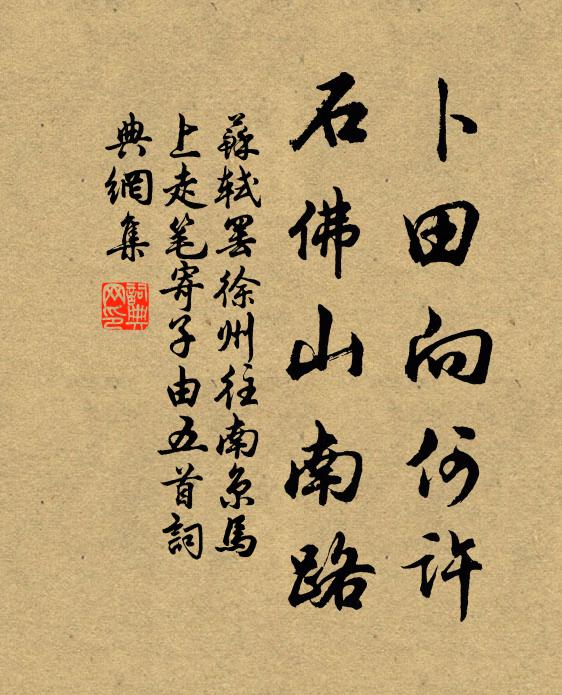 卜田向何許
石佛山南路
蘇軾罢徐州往南京馬
上走笔寄子由五首詞
典網集
詞典
网印